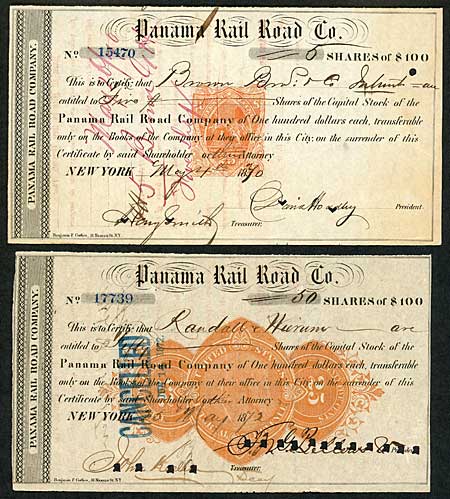 Panama Rail Road Co.
No 15470 5 SHARES of $100
This is to Certify that Brown Bros. & Co. are
entitled to Shares of the Capital Stock of the
Panama Rail Road Company of One hundred dollars each, transferable
only on the Books of the Company at their office in this City, on the surrender of this
Certificate by said Shareholder or their Attorney
NEW YORK May 4th 1870
David Hoadley President.
Henry Smith Treasurer.
Benjamin F. Corlies, St. N.Y.
PANAMA RAIL ROAD COMPANY.
Panama Rail Road Co.
No 17739 50 SHARES of $100
This is to Certify that Randall & are
entitled to Shares of the Capital Stock of the
Panama Rail Road Company of One hundred dollars each, transferable
only on the Books of the Company at their office in this City, on the surrender of the
Certificate by said Shareholder or their Attorney
NEW YORK May 1872
Treasurer.
Benjamin F. Corlies, St. N.Y.
PANAMA RAIL ROAD COMPANY.
CANCELLED